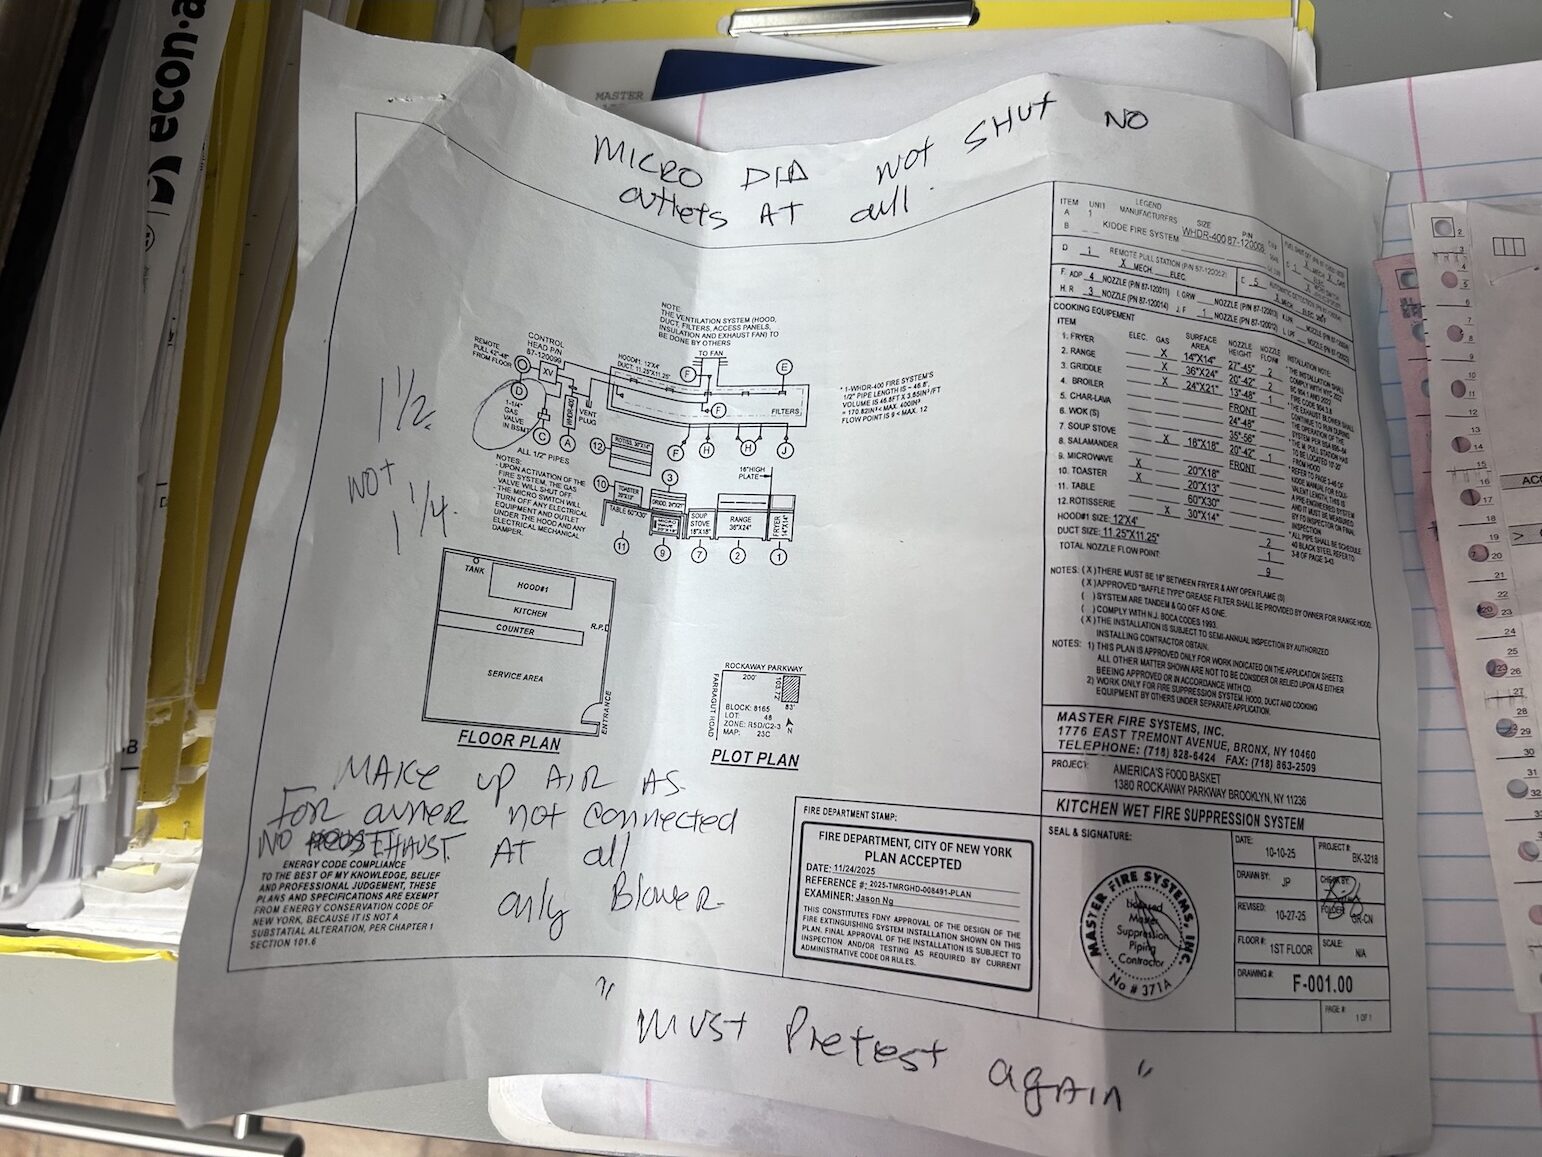 econ-a
MASTER
MICRO DID NOT SHUT NO
OUTLETS AT All.
NOTE:
THE VENTILATION SYSTEM (HOOD,
DUCT, FILTERS, ACCESS PANELS,
INSULATION AND EXHAUST FAN) TO
BE DONE BY OTHERS
TO FAN
CONTROL
HEAD P/N
87-120099
REMOTE
PULL 42"-48"
FROM FLOOR
XV
D
1-1/4"
GAS
VALVE
IN BSMT
C
A
WHDR-400
VENT
PLUG
HOOD#1: 12'X4'
DUCT: 11.25"X11.25"
F
E
F
FILTERS
F
H
H
J
* 1-WHDR-400 FIRE SYSTEM'S
1/2" PIPE LENGTH IS ~ 46.8',
FLOW POINT IS 9 < MAX. 12
ALL 1/2" PIPES
12
3
10
16"HIGH
PLATE
NOTES:
- UPON ACTIVATION OF THE
FIRE SYSTEM, THE GAS
VALVE WILL SHUT OFF.
- THE MICRO SWITCH WILL
TURN OFF ANY ELECTRICAL
EQUIPMENT AND OUTLET
UNDER THE HOOD AND ANY
ELECTRICAL MECHANICAL
DAMPER.
TOASTER
TABLE 60"X30"
SOUP
STOVE
18"X18"
RANGE
36"X24"
FRYER
14"X14"
11
9
7
2
1
1 1/2
NOT 1 1/4.
TANK
HOOD#1
KITCHEN
COUNTER
R.P.
SERVICE AREA
ENTRANCE
FLOOR PLAN
ROCKAWAY PARKWAY
200'
103.72
83'
FARRAGUT ROAD
BLOCK: 8165
LOT: 48
ZONE: R5D/C2-3
MAP: 23C
N
PLOT PLAN
MAKE UP AIR AS
FOR owner not connected
NO EXHAUST AT all
only Blower
ENERGY CODE COMPLIANCE
TO THE BEST OF MY KNOWLEDGE, BELIEF
AND PROFESSIONAL JUDGEMENT, THESE
PLANS AND SPECIFICATIONS ARE EXEMPT
FROM ENERGY CONSERVATION CODE OF
NEW YORK, BECAUSE IT IS NOT A
SUBSTATIAL ALTERATION, PER CHAPTER 1
SECTION 101.6
LEGEND
ITEM UNIT MANUFACTURERS SIZE P/N
A 1
B KIDDE FIRE SYSTEM WHDR-400 87-120008
D 1 REMOTE PULL STATION (P/N 87-120052)
X MECH. ELEC.
F. ADP 4 NOZZLE (P/N 87-120011) I. GRW NOZZLE (P/N 87-120013)
H. R 3 NOZZLE (P/N 87-120014) J. F 1 NOZZLE (P/N 87-120012)
COOKING EQUIPMENT
ITEM ELEC. GAS SURFACE AREA NOZZLE HEIGHT NOZZLE FLOW#
1. FRYER X 14"X14" 27"-45" 2
2. RANGE X 36"X24" 20"-42" 2
3. GRIDDLE X 24"X21" 13"-48" 1
4. BROILER FRONT
5. CHAR-LAVA 24"-48"
6. WOK (S) 35"-56"
7. SOUP STOVE X 18"X18" 20"-42" 1
8. SALAMANDER FRONT
9. MICROWAVE X 20"X18"
10. TOASTER X 20"X13"
11. TABLE 60"X30"
12. ROTISSERIE X 30"X14"
HOOD#1 SIZE: 12'X4' 2
DUCT SIZE: 11.25"X11.25" 1
TOTAL NOZZLE FLOW POINT 9
INSTALLATION NOTE:
NOTES: ( X ) THERE MUST BE 16" BETWEEN FRYER & ANY OPEN FLAME (S)
( X ) APPROVED "BAFFLE TYPE" GREASE FILTER SHALL BE PROVIDED BY OWNER FOR RANGE HOOD.
( ) SYSTEM ARE TANDEM & GO OFF AS ONE.
( ) COMPLY WITH N.J. BOCA CODES 1993.
( X ) THE INSTALLATION IS SUBJECT TO SEMI-ANNUAL INSPECTION BY AUTHORIZED
INSTALLING CONTRACTOR OBTAIN.
NOTES: 1) THIS PLAN IS APPROVED ONLY FOR WORK INDICATED ON THE APPLICATION SHEETS.
ALL OTHER MATTER SHOWN ARE NOT TO BE CONSIDER OR RELIED UPON AS EITHER
BEEING APPROVED OR IN ACCORDANCE WITH CD.
2) WORK ONLY FOR FIRE SUPPRESSION SYSTEM. HOOD, DUCT AND COOKING
EQUIPMENT BY OTHERS UNDER SEPARATE APPLICATION.
MASTER FIRE SYSTEMS, INC.
1776 EAST TREMONT AVENUE, BRONX, NY 10460
TELEPHONE: (718) 828-6424 FAX: (718) 863-2509
PROJECT: AMERICA'S FOOD BASKET
1380 ROCKAWAY PARKWAY BROOKLYN, NY 11236
KITCHEN WET FIRE SUPPRESSION SYSTEM
FIRE DEPARTMENT STAMP:
FIRE DEPARTMENT, CITY OF NEW YORK
PLAN ACCEPTED
DATE: 11/24/2025
REFERENCE #: 2025-TMRGHD-008491-PLAN
EXAMINER: Jason Ng
THIS CONSTITUTES FDNY APPROVAL OF THE DESIGN OF THE
FIRE EXTINGUISHING SYSTEM INSTALLATION SHOWN ON THIS
PLAN. FINAL APPROVAL OF THE INSTALLATION IS SUBJECT TO
INSPECTION AND/OR TESTING AS REQUIRED BY CURRENT
ADMINISTRATIVE CODE OR RULES.
SEAL & SIGNATURE:
MASTER FIRE SYSTEMS, INC.
Licensed
Master
Suppression
Piping
Contractor
No # 371A
DATE: 10-10-25
PROJECT#: BK-3218
DRAWN BY: JP
CHECK BY:
REVISED: 10-27-25
FOLDER: GR-CN
FLOOR #: 1ST FLOOR
SCALE: N/A
DRAWING #: F-001.00
PAGE #: 1 OF 1
"MUST Pretest again"